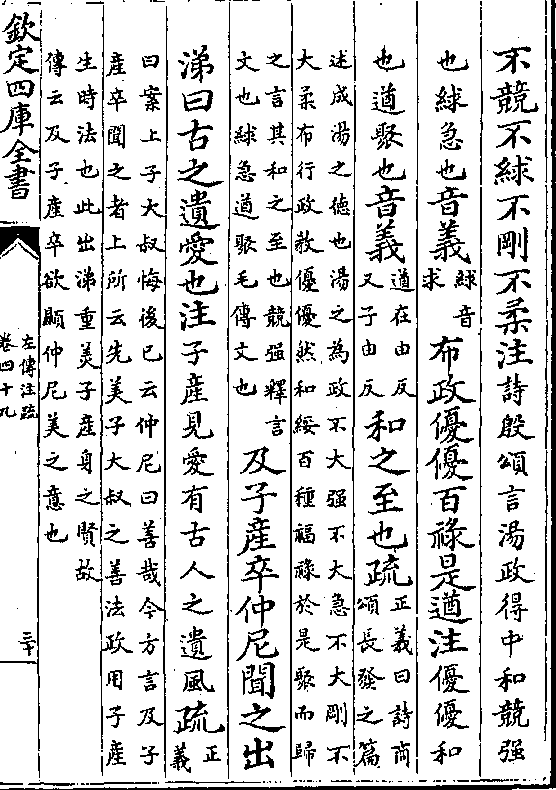 不競不絿不剛不柔注詩殷頌言湯政得中和競强
也絿急也音義絿音求布政優優百祿是遒注優優和
也遒聚也音義遒在由反又子由反和之至也疏正義曰詩商頌長發之篇
述成湯之德也湯之為政不大强不大急不大剛不
大柔布行政教優優然和綏百種福祿於是聚而歸
之言其和之至也競强釋言文也絿急遒聚毛傳文也及子產卒仲尼聞之出
涕曰古之遺愛也注子產見愛有古人之遺風疏正義
曰案上子大叔悔後已云仲尼曰善哉今方言及子
產卒聞之者上所云先美子大叔之善法政用子產
生時法也此出涕重美子產身之賢故
傳云及子產卒欲顯仲尼美之意也
欽定四庫全書
左傳注疏
卷四十九
三十